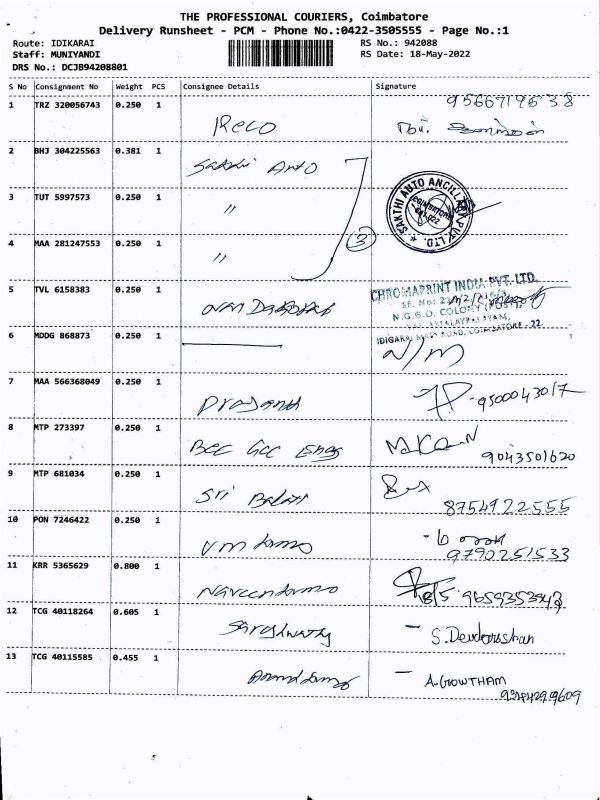 THE PROFESSIONAL COURIERS, Coimbatore
Delivery Runsheet - PCM - Phone No.:0422-3505555 - Page No.:1
Route: IDIKARAI RS No.: 942088
Staff: MUNIYANDI RS Date: 18-May-2022
DRS No.: DCJB94208801
S No Consignment No Weight PCS Consignee Details Signature
1 TRZ 320056743 0.250 1
2 BHJ 304225563 0.381 1 Sakthi Auto
SAKTHI AUTO ANCILLARY PVT. LTD.
3 TUT 5997573 0.250 1 "
4 MAA 281247553 0.250 1 " 3
5 TVL 6158383 0.250 1
CHROMAPRINT INDIA PVT. LTD.
N.G.G.O. COLONY
COIMBATORE - 22
6 MDDG 868873 0.250 1 N/M
7 MAA 566368049 0.250 1 Prasanth 9500043017
8 MTP 273397 0.250 1 9043501620
9 MTP 681034 0.250 1 Sri Balaji 8754922555
10 PON 7246422 0.250 1 9790251533
11 KRR 5365629 0.800 1 9659353943
12 TCG 40118264 0.605 1
13 TCG 40115585 0.455 1 A. GOWTHAM